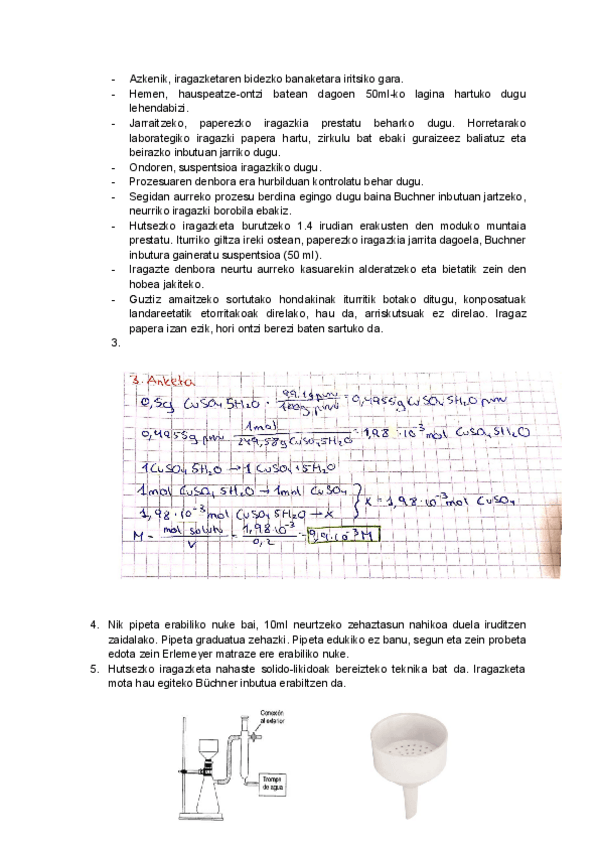 - Azkenik, iragazketaren bidezko banaketara iritsiko gara.
- Hemen, hauspeatze-ontzi batean dagoen 50ml-ko lagina hartuko dugu
lehendabizi.
- Jarraitzeko, paperezko iragazkia prestatu beharko dugu. Horretarako
laborategiko iragazki papera hartu, zirkulu bat ebaki guraizeez baliatuz eta
beirazko inbutuan jarriko dugu.
- Ondoren, suspentsioa iragazkiko dugu.
- Prozesuaren denbora era hurbilduan kontrolatu behar dugu.
- Segidan aurreko prozesu berdina egingo dugu baina Buchner inbutuan jartzeko,
neurriko iragazki borobila ebakiz.
- Hutsezko iragazketa burutzeko 1.4 irudian erakusten den moduko muntaia
prestatu. Iturriko giltza ireki ostean, paperezko iragazkia jarrita dagoela, Buchner
inbutura gaineratu suspentsioa (50 ml).
- Iragazte denbora neurtu aurreko kasuarekin alderatzeko eta bietatik zein den
hobea jakiteko.
- Guztiz amaitzeko sortutako hondakinak iturritik botako ditugu, konposatuak
landareetatik etorritakoak direlako, hau da, arriskutsuak ez direlao. Iragaz
papera izan ezik, hori ontzi berezi baten sartuko da.
3.
3. Anketa
0,5g CuSO4 5H2O · 99.1g puru / 100g puru = 0,4955g CuSO4 5H2O puru
0,4955g puru 1mol / 249,58g CuSO4 5H2O = 1,98 · 10-3 mol CuSO4 5H2O
1 CuSO4 5H2O → 1 CuSO4 + 5H2O
1mol CuSO4 5H2O → 1mol CuSO4
1,98 · 10-3 mol CuSO4 5H2O → x } x = 1,98 · 10-3 mol CuSO4
M = mol solutu / V = 1,98 · 10-3 / 0,2 = 9,9 · 10-3 M
4. Nik pipeta erabiliko nuke bai, 10ml neurtzeko zehaztasun nahikoa duela iruditzen
zaidalako. Pipeta graduatua zehazki. Pipeta edukiko ez banu, segun eta zein probeta
edota zein Erlemeyer matraze ere erabiliko nuke.
5. Hutsezko iragazketa nahaste solido-likidoak bereizteko teknika bat da. Iragazketa
mota hau egiteko Büchner inbutua erabiltzen da.
Conexión
al exterior
Trompa
de agua